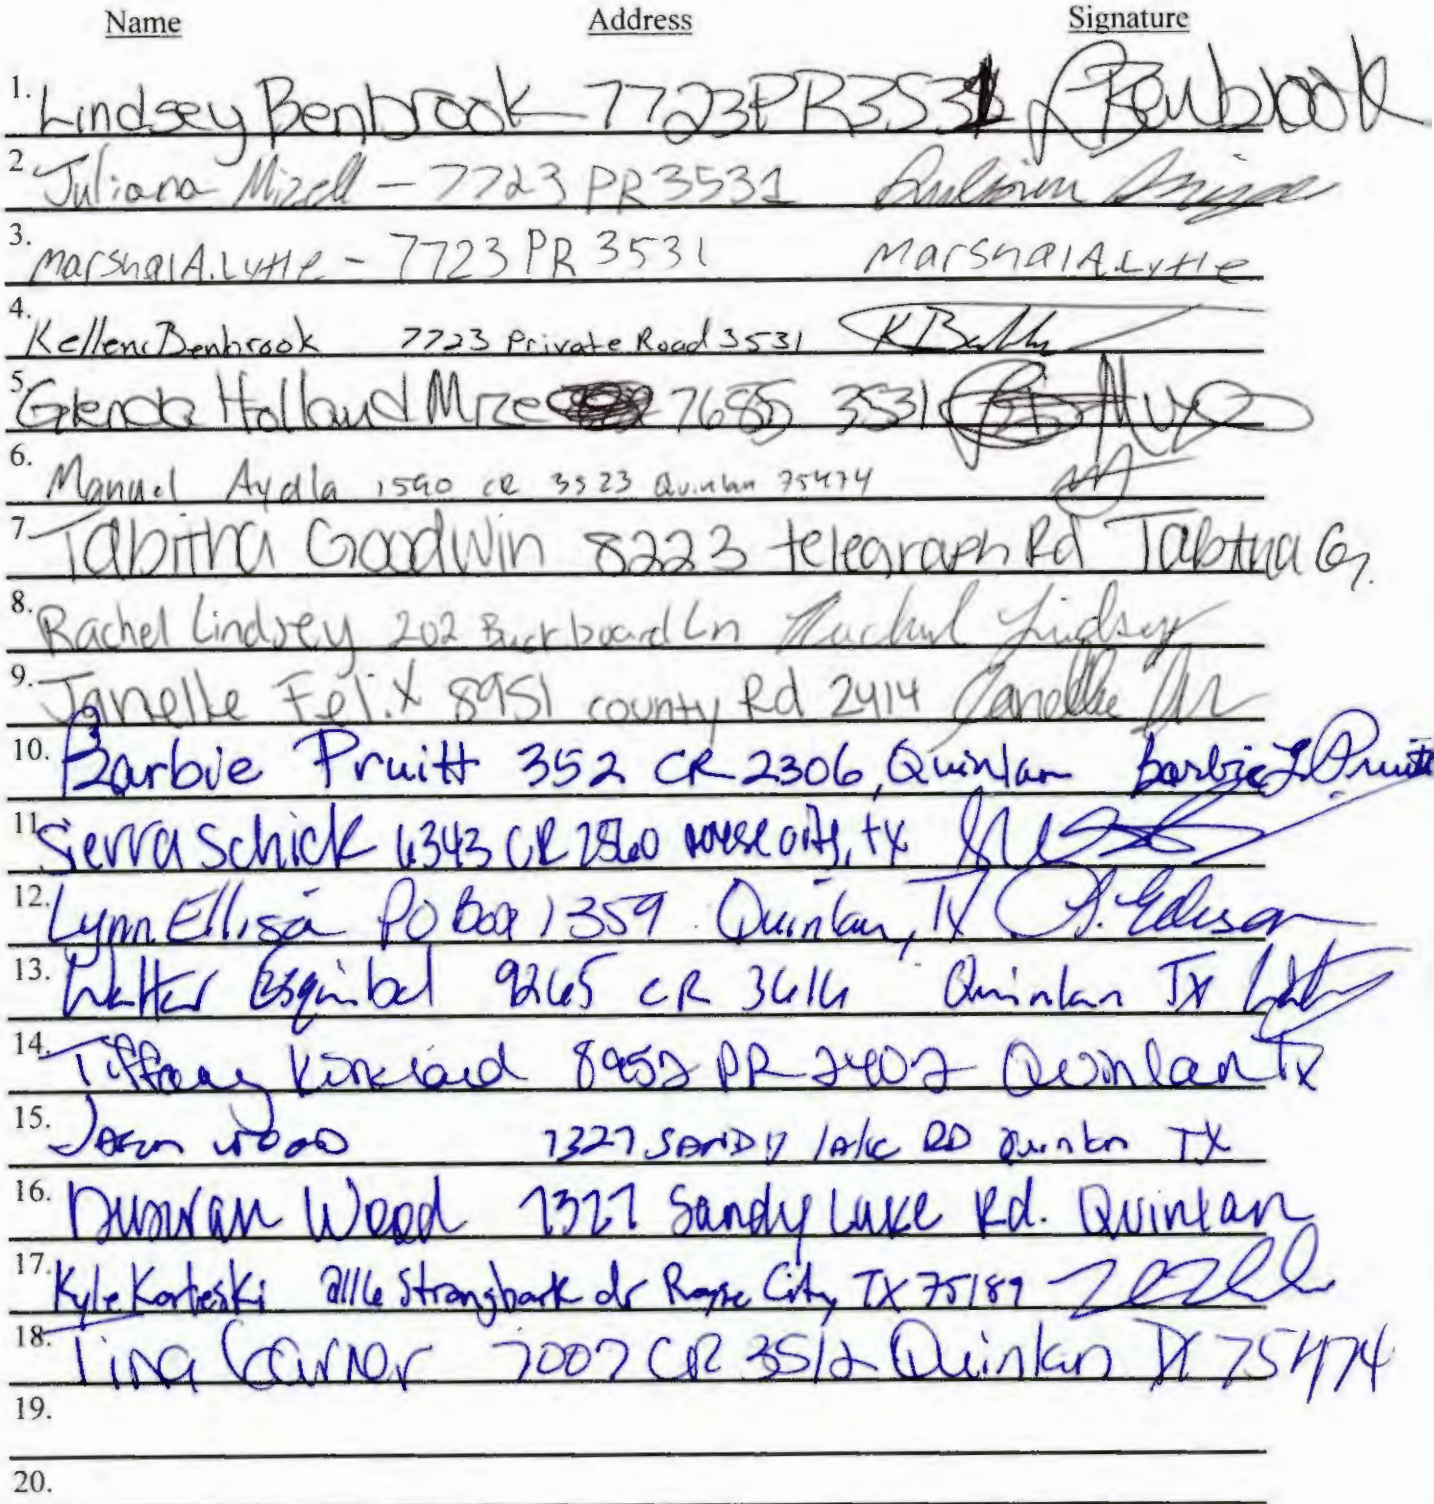 Name Address Signature
1. Lindsey Benbrook 7723 PR 3531 L Benbrook
2. Juliana Mizell - 7723 PR 3531
3. Marshal A. Lytle - 7723 PR 3531 Marshal A. Lytle
4. Kellen Benbrook 7723 Private Road 3531
5. Glenda Holland 7685 3531
6. Manuel Ayala 1590 CR 3523 Quinlan 75474
7. Tabitha Goodwin 8223 telegraph Rd Tabitha G.
8. Rachel Lindsey 202 Buckboard Ln Rachel Lindsey
9. Janelle Felix 8951 county Rd 2414 Janelle
10. Barbie Pruitt 352 CR 2306, Quinlan Barbie L Pruitt
11. Sierra Schick 6343 CR 2560 tx
12. Lynn Ellison PO Box 1359 Quinlan, TX L. Ellison
13. Walter Esquibel 9265 CR 3616 Quinlan TX
14. Tiffany Kinkaid 8952 PR 2402 Quinlan TX
15. Jason Wood 7327 SANDY lake RD Quinlan TX
16. Wood 7327 Sandy Lake Rd. Quinlan
17. Kyle Korteski 2116 Strongbark dr Royse City, TX 75189
18. Tina Garner 7007 CR 3512 Quinlan TX 75474
19.
20.